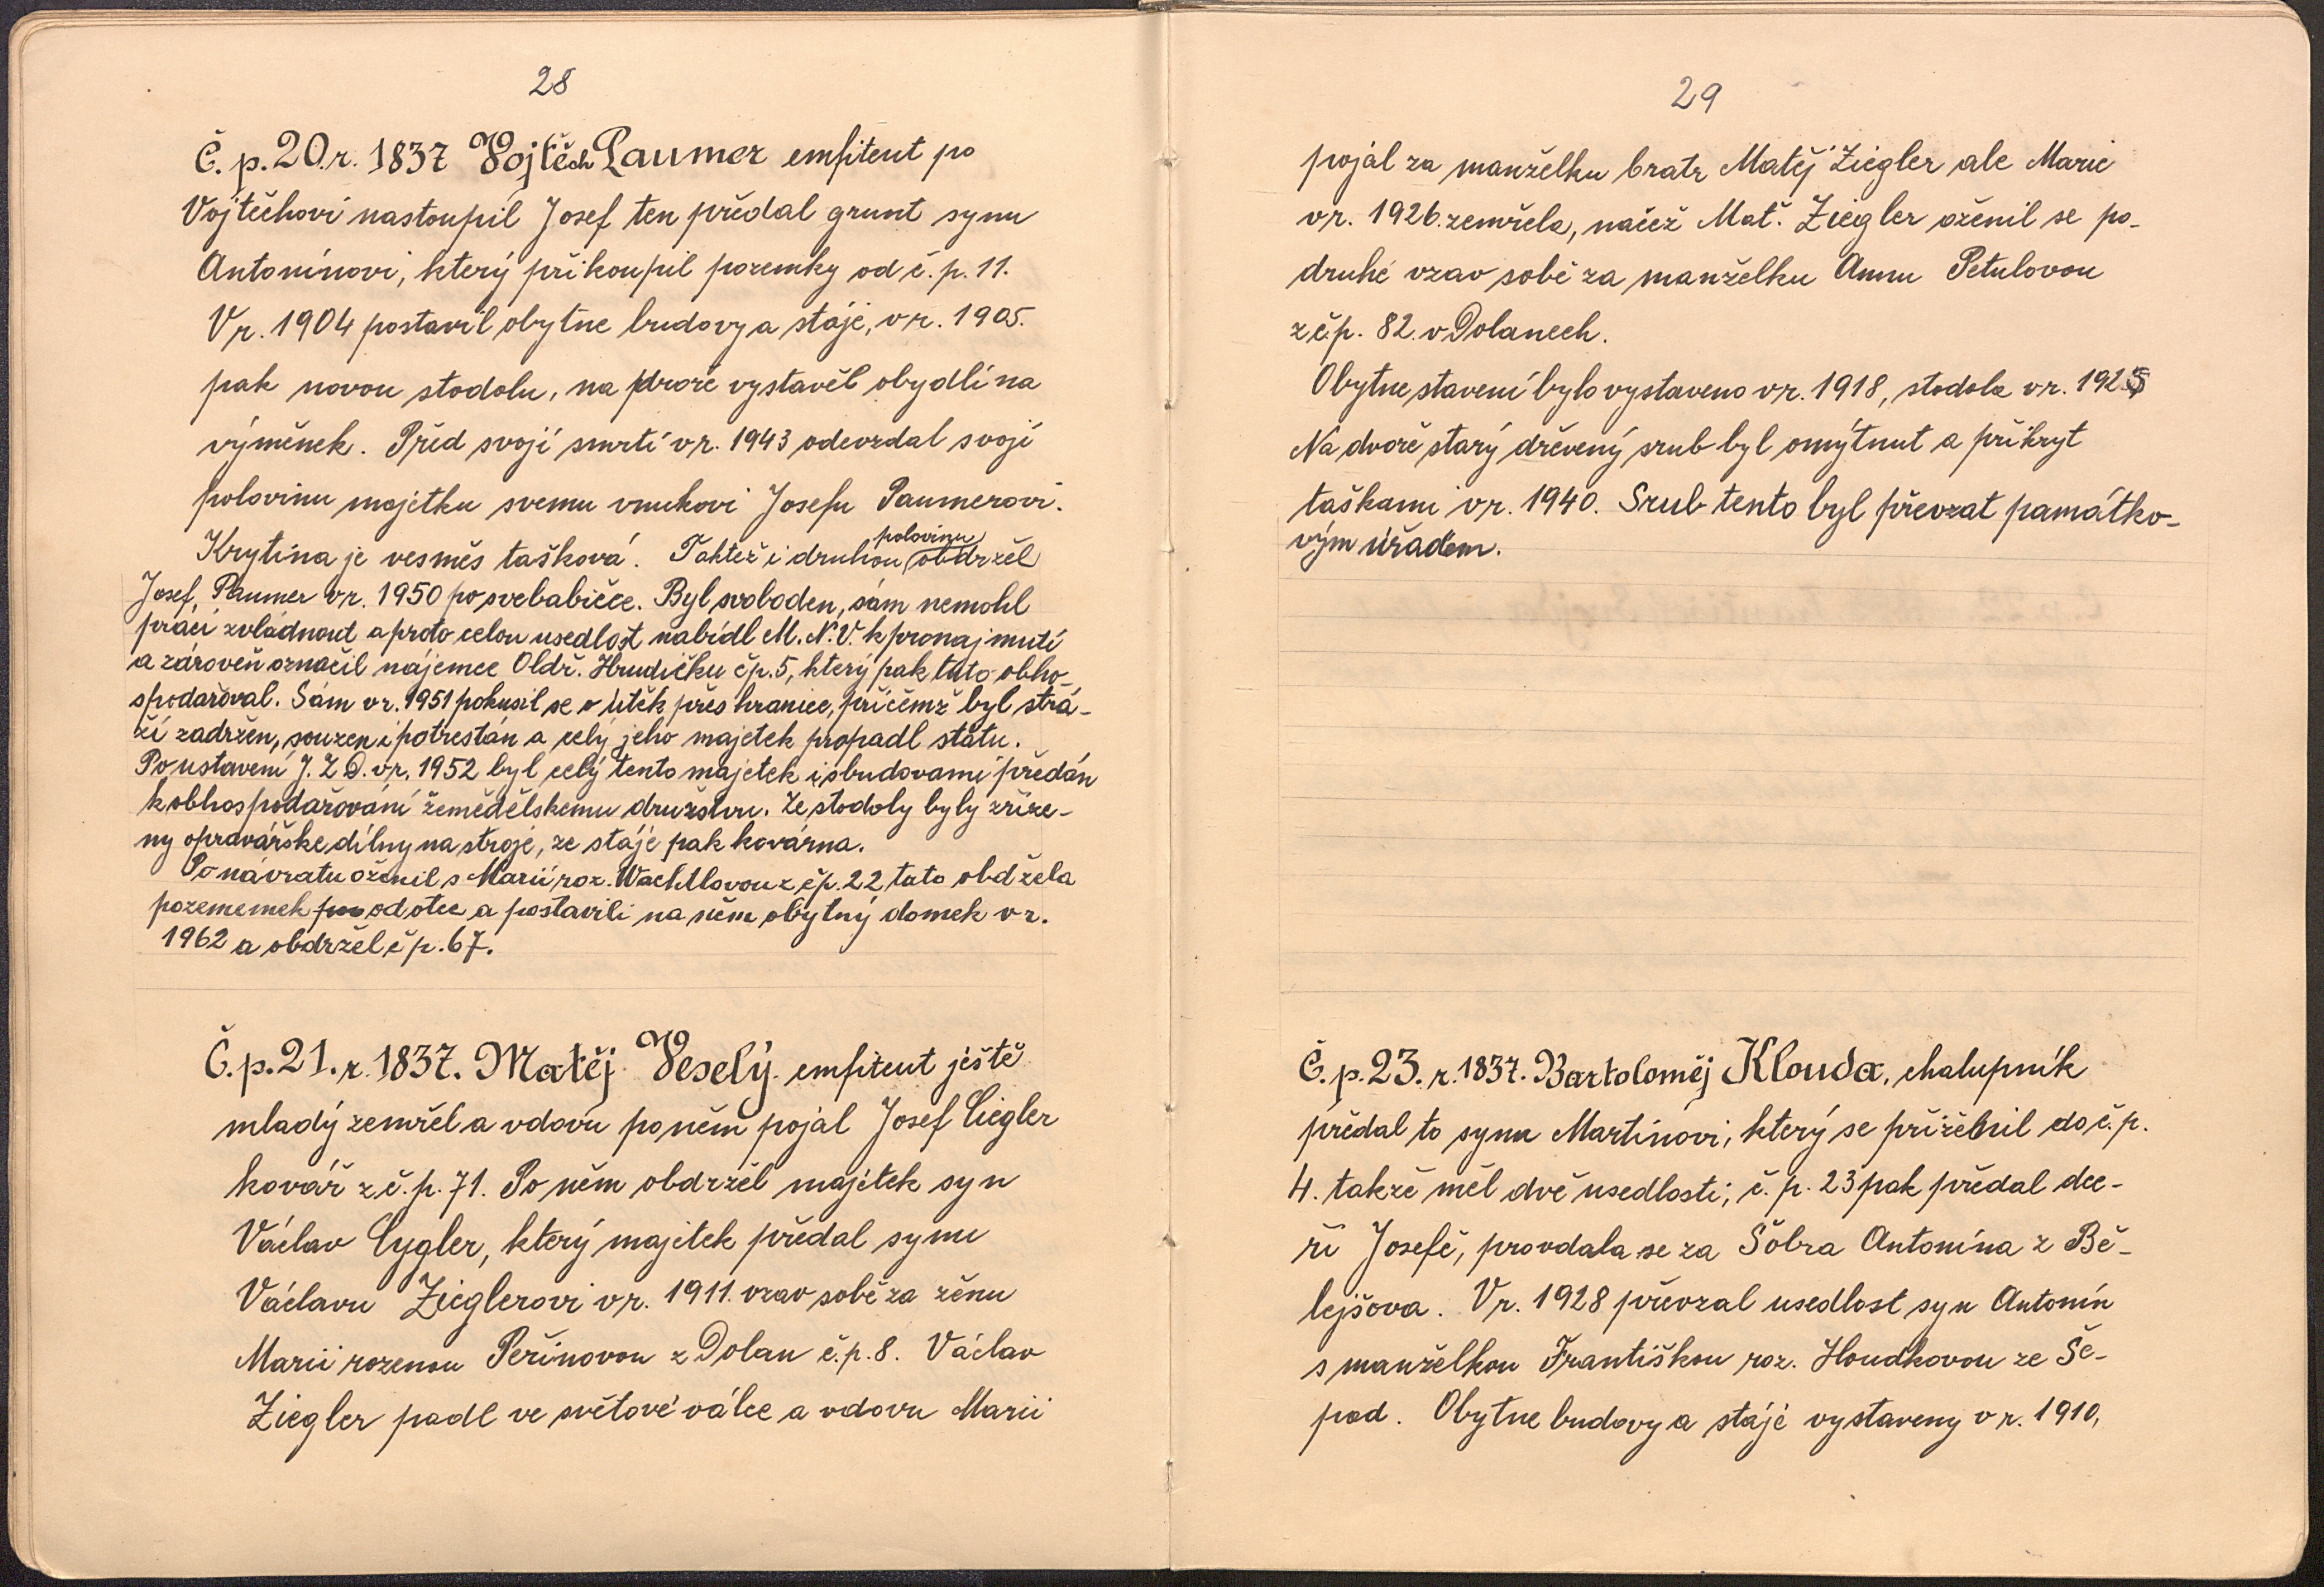 28
Č. p. 20. r. 1837 Vojtěch Paumer emfiteut po
Vojtěchovi nastoupil Josef ten předal grunt synu
Antonínovi, který přikoupil pozemky od č. p. 11.
V r. 1904 postavil obytne budovy a stáje, v r. 1905.
pak novou stodolu, na dvoře vystavěl obydlí na
výměnek. Před svojí smrtí v r. 1943 odevzdal svojí
polovinu majetku svemu vnukovi Josefu Paumerovi.
Krytina je vesměs tašková. Taktéž i druhou polovinu obdržel
Josef, Paumer v r. 1950 po svebabičce. Byl svoboden, sám nemohl
práci zvládnout a proto celou usedlost nabídl M. N. V. k pronajmutí
a zároveň označil nájemce Oldř. Hrudičku čp. 5, který pak tuto obho-
spodařoval. Sám v r. 1951 pokusil se o útěk přes hranice, přičemž byl strá-
ží zadržen, souzen i potrestán a celý jeho majetek propadl státu.
Po ustavení J. Z. D. v r. 1952 byl celý tento majetek i s budovami předán
k obhospodařování zemědělskemu družstvu. Ze stodoly byly zříze-
ny opravářske dílny na stroje, ze stáje pak kovárna.
Po návratu oženil s Marií roz. Wachtlovou z čp. 22 tato obdžela
pozememek od otce a postavili na něm obytný domek v r.
1962 a obdržel č p. 67.
Č. p. 21. r. 1837. Matěj Veselý emfiteut ještě
mladý zemřel a vdovu po něm pojal Josef Ciegler
kovář z č. p. 71. Po něm obdržel majetek syn
Václav Cygler, který majetek předal synu
Václavu Zieglerovi v r. 1911. vzav sobě za ženu
Marii rozenou Peřinovou z Dolan č. p. 8. Václav
Ziegler padl ve světové válce a vdovu Marii
29
pojal za manželku bratr Matěj Ziegler ale Marie
v r. 1926. zemřela, načež Mat. Ziegler oženil se po-
druhé vzav sobě za manželku Annu Petulovou
z čp. 82. v Dolanech.
Obytne stavení bylo vystaveno v r. 1918, stodola v r. 1925
Na dvoře starý dřevený srub byl omýtnut a přikryt
taškami v r. 1940. Srub tento byl převzat památko-
vým úřadem.
Č. p. 23. r. 1837. Bartoloměj Klouda, chalupník
předal to synu Martinovi, který se přiženil do č. p.
4. takže měl dvě usedlosti; č. p. 23 pak předal dce-
ři Josefě, provdala se za Šóbra Antonína z Bě-
lejšova. V r. 1928 převzal usedlost syn Antonín
s manželkou Františkou roz. Houdkovou ze Še-
pad. Obytne budovy a stáje vystaveny v r. 1910,